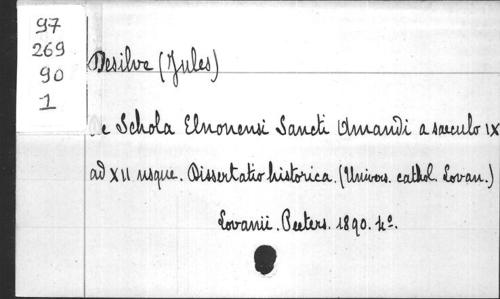 97
269
90
1
Desilve (Jules)
De Schola Elnonensi Sancti Amandi a saeculo IX
ad XII usque. Dissertatio historica. (Univers. cathol. Lovan.)
Lovanii. Peeters. 1890. 4o.